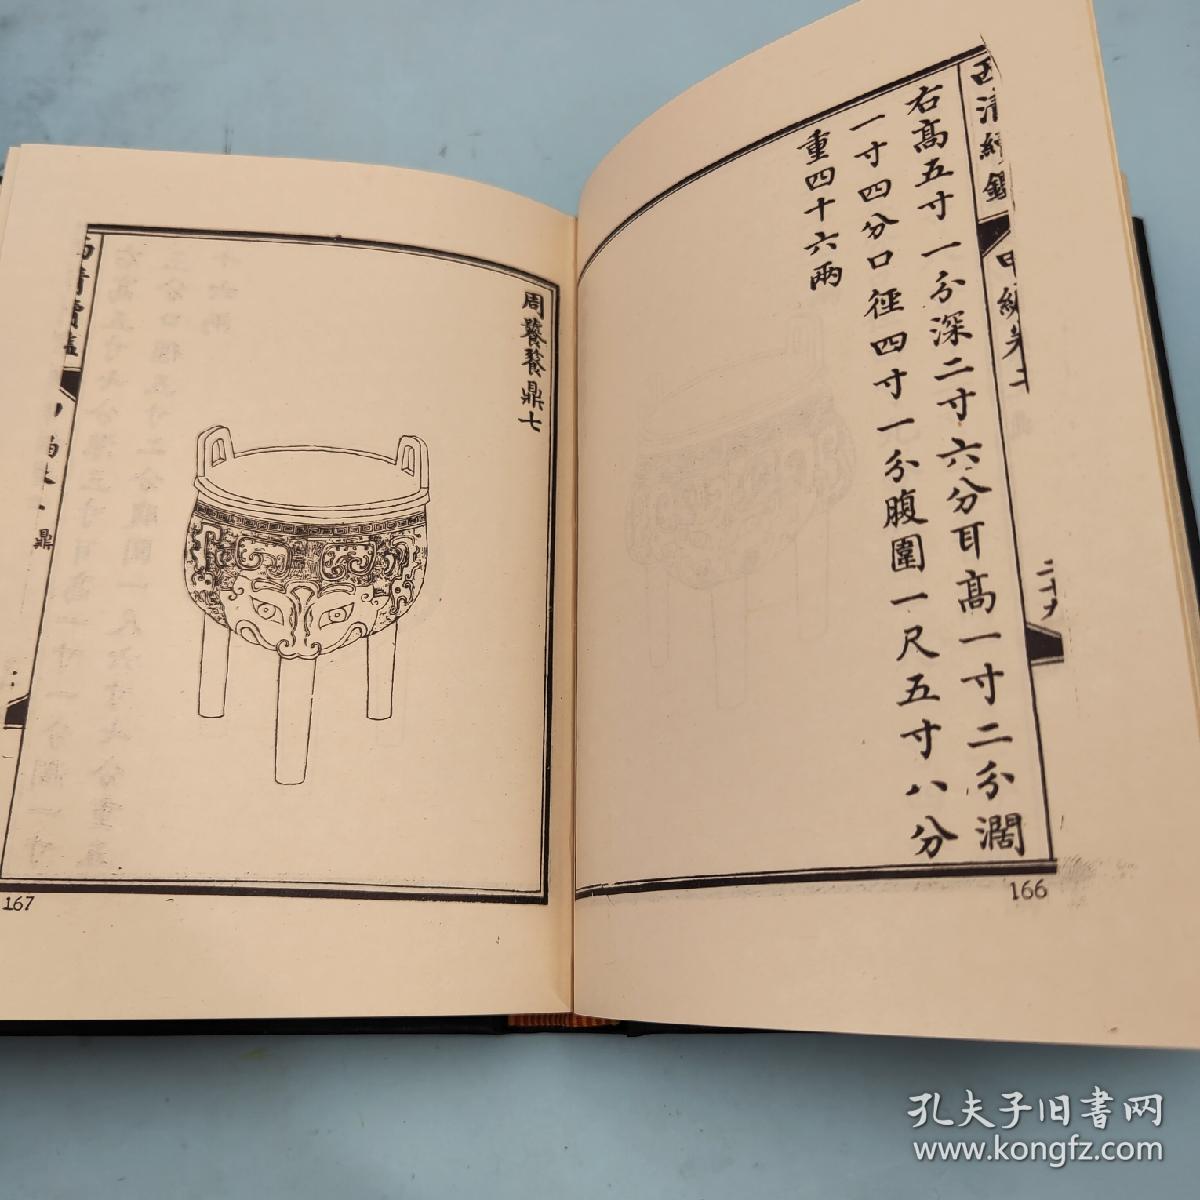 右高五寸一分深二寸六分耳高一寸二分濶
一寸四分口徑四寸一分腹圍一尺五寸八分
重四十六兩
166
周饕餮鼎七
鼎
167
孔夫子旧书网
www.kongfz.com